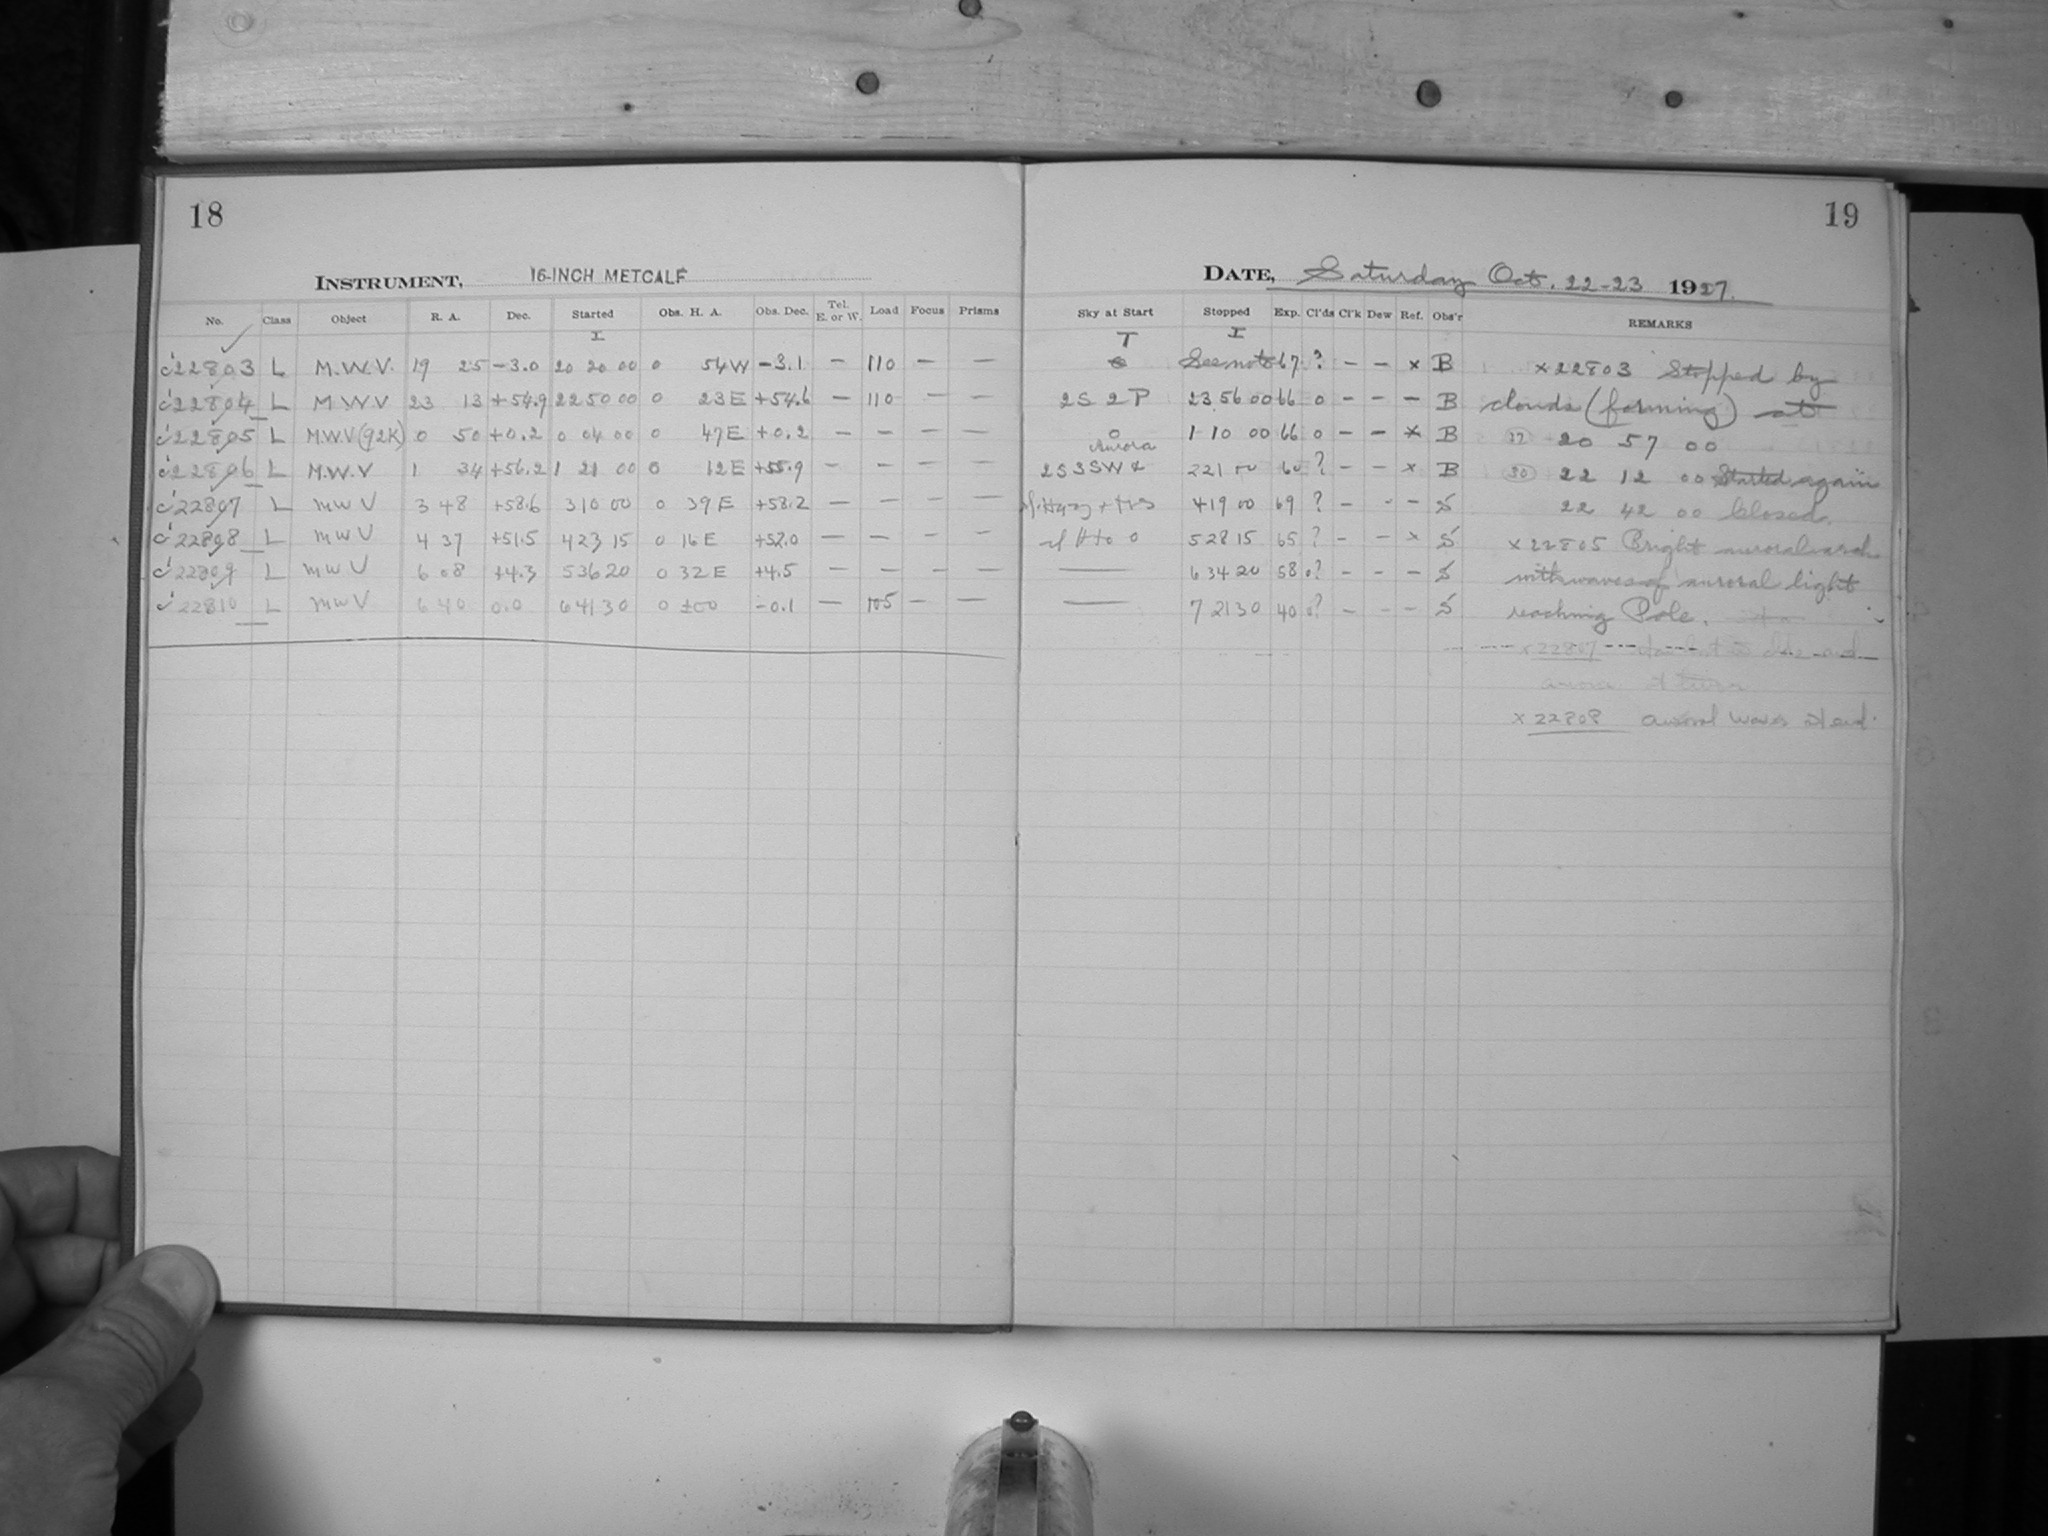 18
INSTRUMENT, 16-INCH METCALF
No. Class Object R. A. Dec. Started Obs. H. A. Obs. Dec. Tel. E. or W. Load Focus Prisms
I
c22803 L M.W.V. 19 25 -3.0 20 20 00 0 54W -3.1 - 110 - -
c22804 L M.W.V 23 13 +54.9 22 50 00 0 23E +54.6 - 110 - -
c22805 L M.W.V(92K) 0 50 +0.2 0 04 00 0 47E +0.2 - - - -
c22806 L M.W.V 1 34 +56.2 1 21 00 0 12E +55.9 - - - -
c22807 L MWV 3 48 +58.6 3 10 00 0 39E +58.2 - - - -
c22808 L MWV 4 37 +51.5 4 23 15 0 16E +52.0 - - - -
c22809 L MWV 6 08 +4.3 5 36 20 0 32E +4.5 - - - -
c22810 L MWV 6 40 0.0 6 41 30 0 ±00 -0.1 - 105 - -
19
DATE, Saturday Oct. 22-23 1927.
Sky at Start Stopped Exp. Cl'ds Cl'k Dew Ref. Obs'r REMARKS
T I
See note 67 ? - - x B x22803 Stopped by
2S 2P 23 56 00 66 0 - - - B clouds (forming) at
0 1 10 00 66 0 - - x B 20 57 00
Aurora
2S3SW & 2 21 00 60 ? - - x B 22 12 00 Started again
4 19 00 69 ? - - - S 22 42 00 Closed.
5 28 15 65 ? - - x S x22805 Bright auroral arch
—— 6 34 20 58 0? - - - S with waves of auroral light
—— 7 21 30 40 0? - - - S reaching Pole.
x22807
x22808 auroral waves at end.